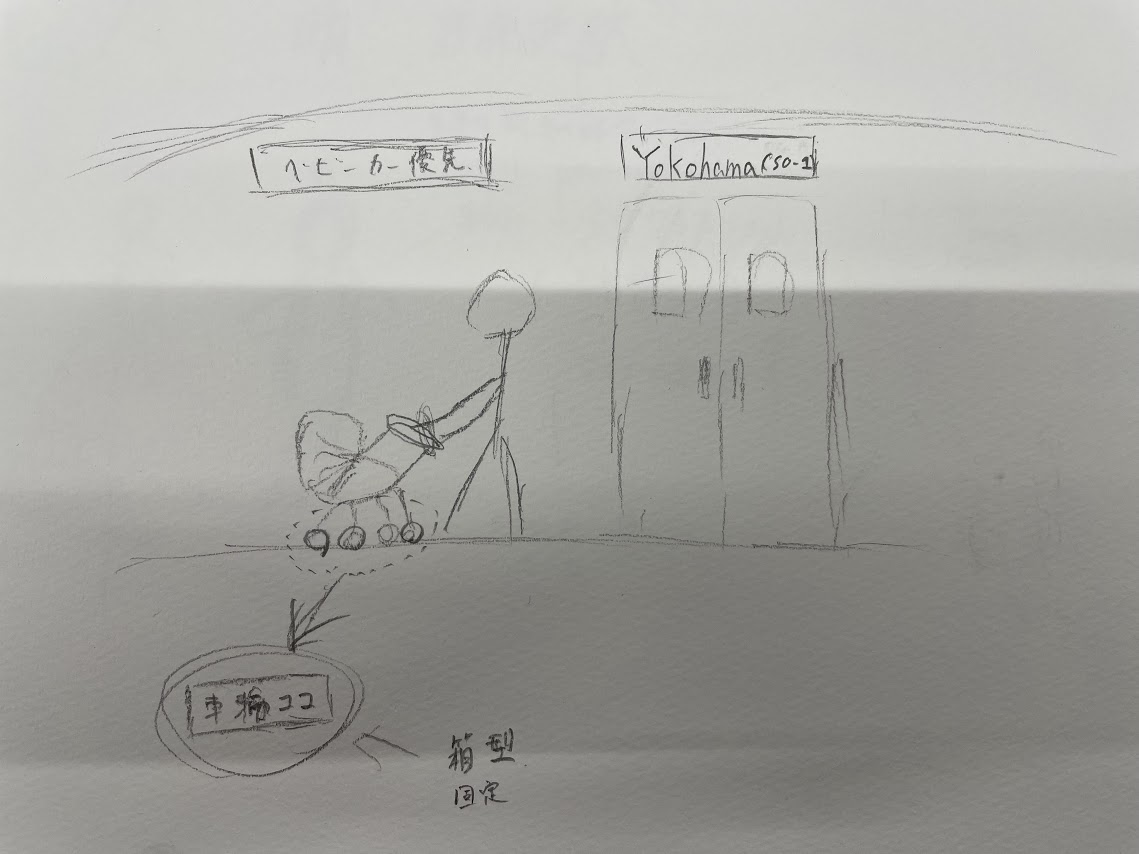 ベビーカー優先
Yokohama (SO-1)
車輪ココ
箱型
固定